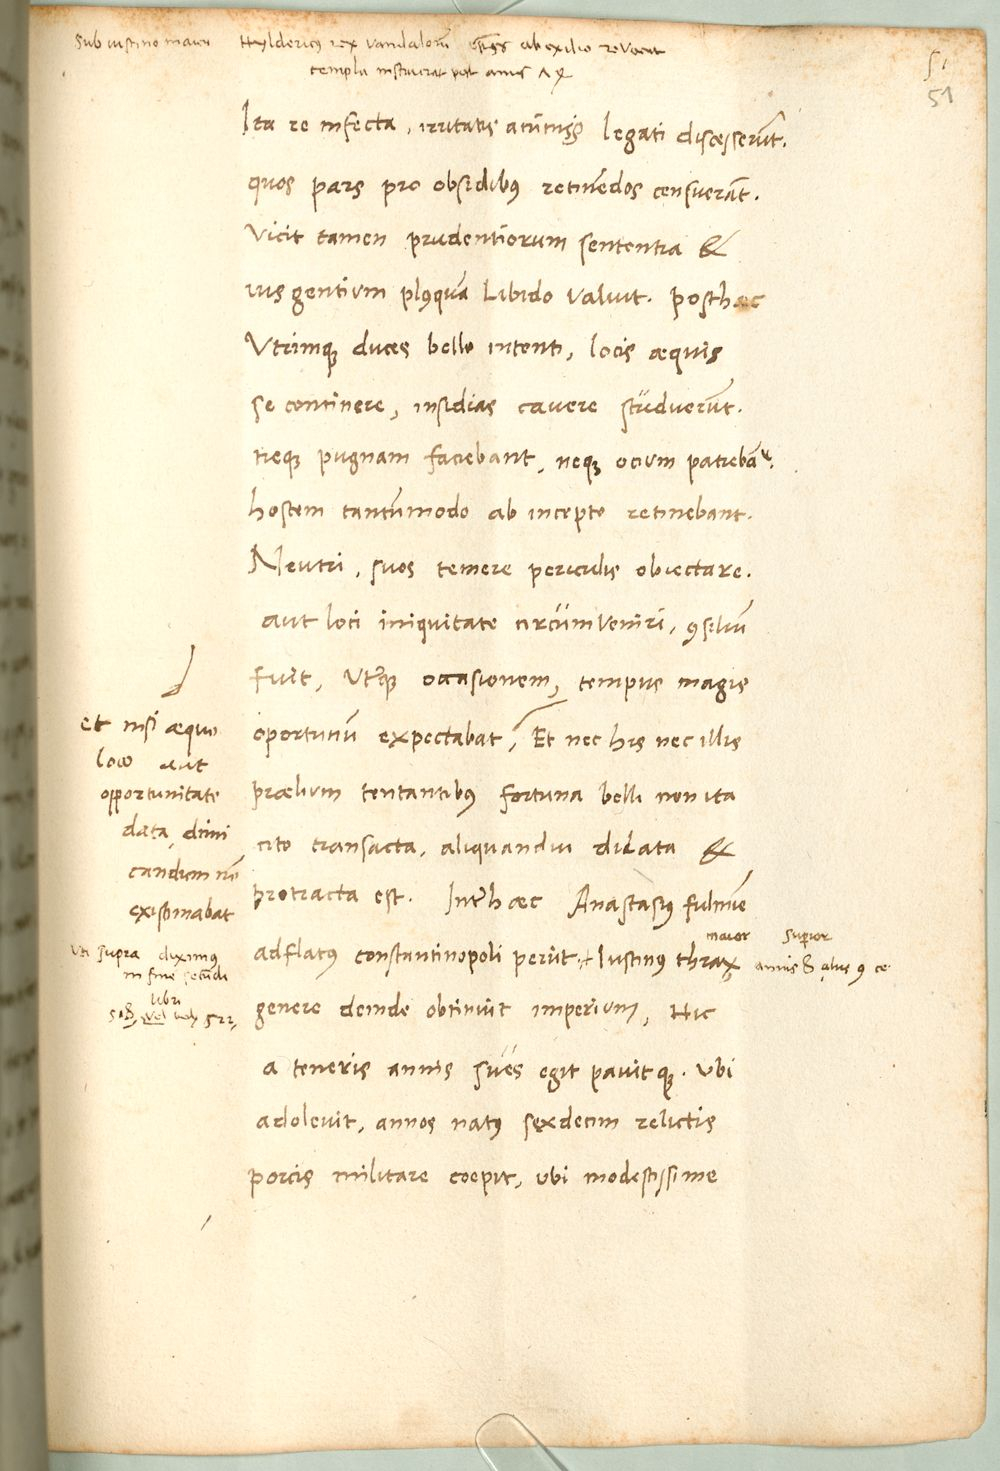 Sub iustino maiori Hyldericus rex vandalorū ep̄os ab exilio revocat
templa instruerat post annis
51
51
Ita re infecta, irritatis animis, legati discesserūt.
quos pars pro obsidibus retinēdos censuerāt.
Vicit tamen prudentiorum sententia &
ius gentium plusquā Libido valuit. posthæc
Vtrimq; duces bello intenti, locis æquis
se continere, insidias cavere studuerūt.
neq; pugnam faciebant, neq; ocium patiebāt.
hostem tantūmodo ab incepto retinebant.
Neutri, suos temere periculis obiectare.
aut loci iniquitate circūmveniri, ɔsiliū
fuit, Vterq; occasionem, tempus magis
oportunū expectabat, Et nec his nec illis
prælium tentantibus fortuna belli non ita
cito transacta, aliquandiu dilata &
protracta est. Inter hæc Anastasius fulmīe
adflatus constantinopoli periit, + Iustinus maior thrax
genere deinde obtinuit imperium, Hic
a teneris annis sues egit pavitq;. Vbi
adolevit, annos natus sexdecim relictis
porcis militare coepit, ubi modestissime
et nisi æquo
loco aut
opportunitate
data, dimi
candum nō
existimabat
Vti supra diximus
in fine secūdi
libri
518, vel 522,
superior
annis 8 alius 9